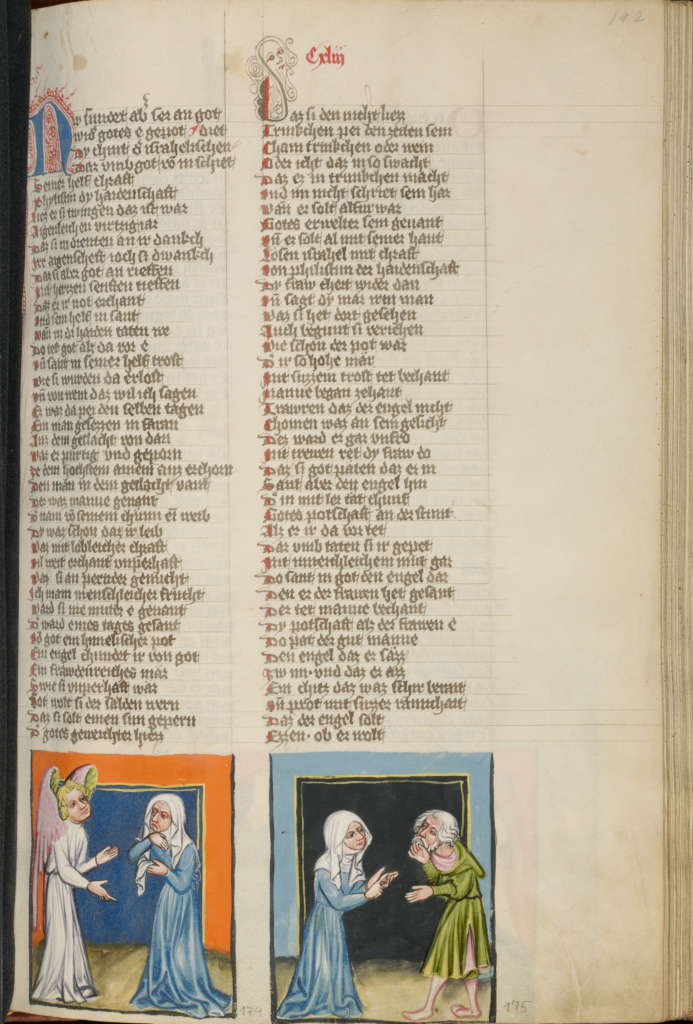 142
Cxliii
Nv sundet ab' ser an got
wid' gotes e gepot diet
Dy chint d' israhelischen
Dar vmb got vō in schiet
Seiner helf chraft
Phylistin dy haidenschaft
Liez er si twingen daz ist war
Aigenleichen virtzig iar
Daz si in dienten an ir danckch
Ire aigenscheft
Daz si aber got an rieffen
Mit hertzen senften tieffen
Daz er ir not erchant
Vnd sein helf in sant
Wan in di haiden taten we
Do tet got als da vor e
Vn̄ sant in seiner helf trost
Wie si wurden da erlost
Vn̄ von wem daz wil ich sagen
Ez waz da pei den selben tagen
Ein man gesezzen in saraa
Auz dem geslacht von dan
Waz er pürtig vnd geporn
Ze dem hochstem
Den man in dem geslacht vant
Der waz manue genant
D' nam vō seinem chunn ein weib
Dy waz schon daz ir leib
Waz mit lobleicher chraft
Vil weit erchant vnperhaft
Waz si an pernder genucht
Ich main menschleicher frucht
Ward si nie muter e genant
D' ward eines tages gesant
Vō got ein himelischer pot
Ein engel chundet ir von got
Ein frawdenreiches mar
Swie si vnperhaft war
Got wolt si der salden wern
Daz si solt einen sun gepern
D' gotes geweichter hiezz
Daz si den nicht liez
Trinkchen pei den zeiten sein
Chain trinkchen oder wein
Oder icht daz in so swacht
Daz er in trunkchen macht
Vnd im nicht schriet sein har
Wan er solt alfür war
Gotes erwelter sein genant
Vn̄ er solt al mit seiner hant
Losen israhel mit chraft
Von philistin der haidenschaft
Dy fraw chert wider dan
Vn̄ sagt dy mar irm man
Waz si het dort gesehen
Auch begunt si veriehen
Wie schön der pot war
D' ir so hohe mar
Mit suzzem trost tet bechant
Manue began zehant
Trawren daz der engel nicht
Chomen waz an sein gesicht
Dez ward er gar vnfro
Mit trewen ret dy fraw do
Daz si got paten daz er in
Sant aber den engel hin
D' in mit ler tät chunt
Gotes potschaft an der stunt
Alz er ir da vor tet
Dar vmb taten si ir gepet
Mit innerchleichem müt gar
Do sant in got den engel dar
Den er der frawen het gesant
Der tet manue bechant
Dy potschaft als der frawen e
Do pat der gut manue
Den engel daz er sazz
Zw im vnd daz er azz
Ein chitz daz waz schir berait
Vn̄ prot mit suzzer
Daz der engel solt
Ezzen ob er wolt
174
175